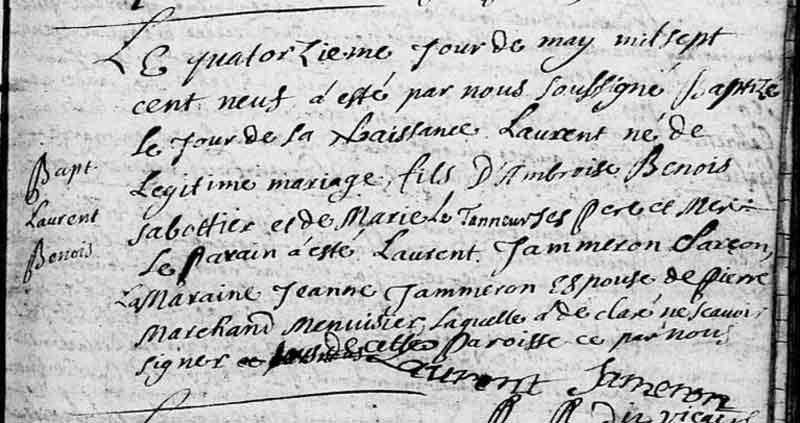 Le quatorzieme Jour de may mil sept
cent neuf à esté par nous soussigné Baptizé
le Jour de sa Naissance Laurent né de
Legitime mariage, fils D'Ambroise Benois
sabottier et de Marie Le Tanneur ses Pere et Mere
Le Parain à esté Laurent Jammeron Garçon,
La Maraine Jeanne Jammeron Espouse de Pierre
Marchand Menuisier, laquelle a de claré ne scavoir
signer de cette Paroisse ce par nous
Bapt
Laurent
Benois
Laurent Jameron
vicaire